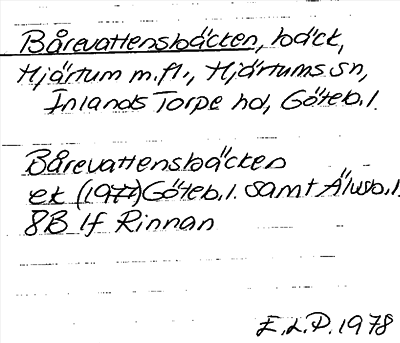 Bårevattensbäcken, bäck,
Hjärtum m.fl., Hjärtums sn,
Inlands Torpe hd, Göteb.l.
Bårevattensbäcken
ek (1977) Göteb.l. samt Älvsb.l.
8B 1f Rinnan
E.L.P. 1978